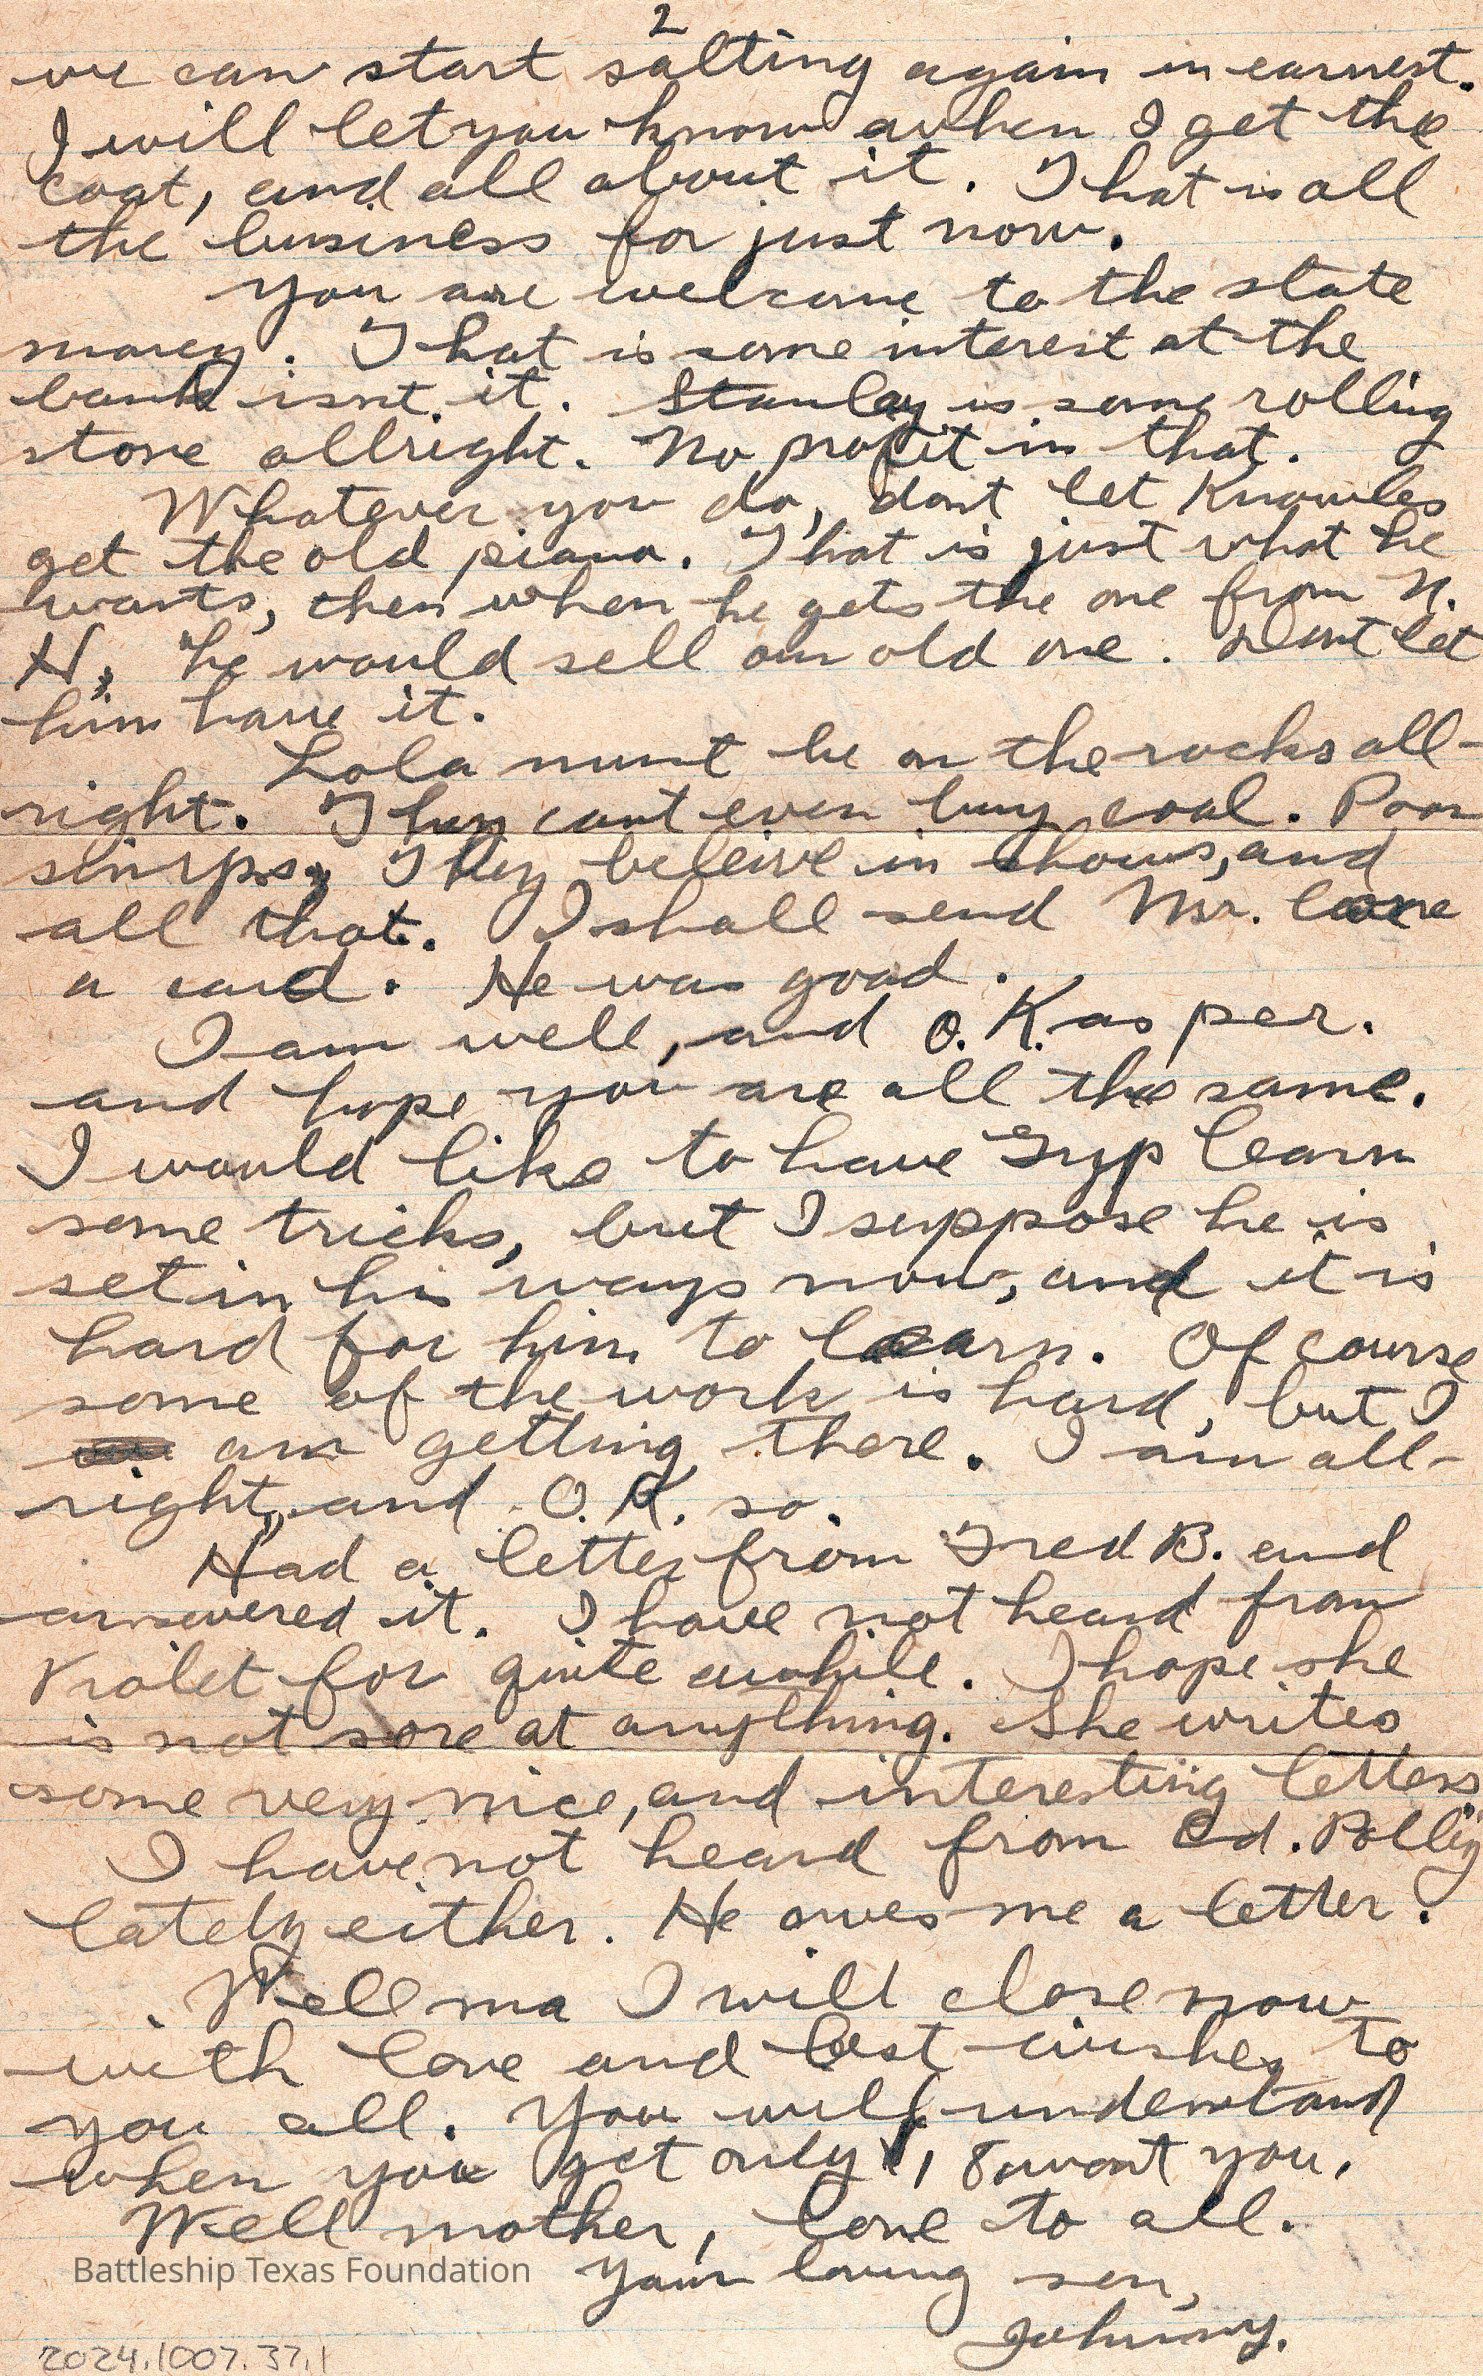 2
we can start salting again in earnest.
I will let you know awhen I get the
coat, and all about it. That is all
the business for just now.
You are welcome to the state
money. That is some interest at the
bank isnt it. Stanley is some rolling
stone allright. No profit in that.
Whatever you do, dont let Knowles
get the old piano. That is just what he
wants, then when he gets the one from N.
H, he would sell our old one. Dont let
him have it.
Lola must be on the rocks all-
right. They cant even buy coal. Poor
simps, They beleive in shows, and
all that. I shall send Mr.
a card. He was good.
I am well, and O.K. as per.
and hope you are all the same.
I would like to have Gyp learn
some tricks, but I suppose he is
set in his ways now, and it is
hard for him to learn. Of course
some of the work is hard, but I
am getting there. I am all-
right, and O.K. so.
Had a letter from Fred B. and
answered it. I have not heard from
Violet for quite awhile. I hope she
is not sore at anything. She writes
some very nice, and interesting letters
I have not heard from Ed.
lately either. He owes me a letter.
Well ma I will close now
with love and best wishes to
you all. You will understand
when you get only 1, wont you.
Well mother, love to all.
Your loving son,
Johnny.
Battleship Texas Foundation
2024.1007.37.1